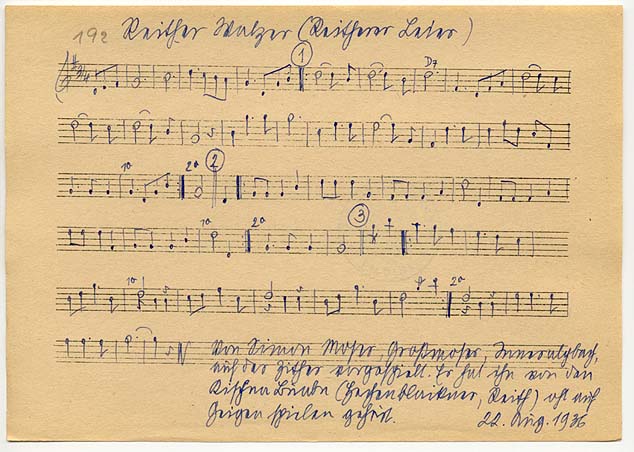 192 Reither Walzer (Reitherer Leier)
1
D7
1a 2a 2
1a 2a 3
1a 2a
Von Simon Moser, Großmoser, Inneralpbach,
auf der Zither vorgespielt. Er hat ihn von den
Buabn (Zechenblaikner, Reith) oft auf
Geigen spielen gehört. 22. Aug. 1936